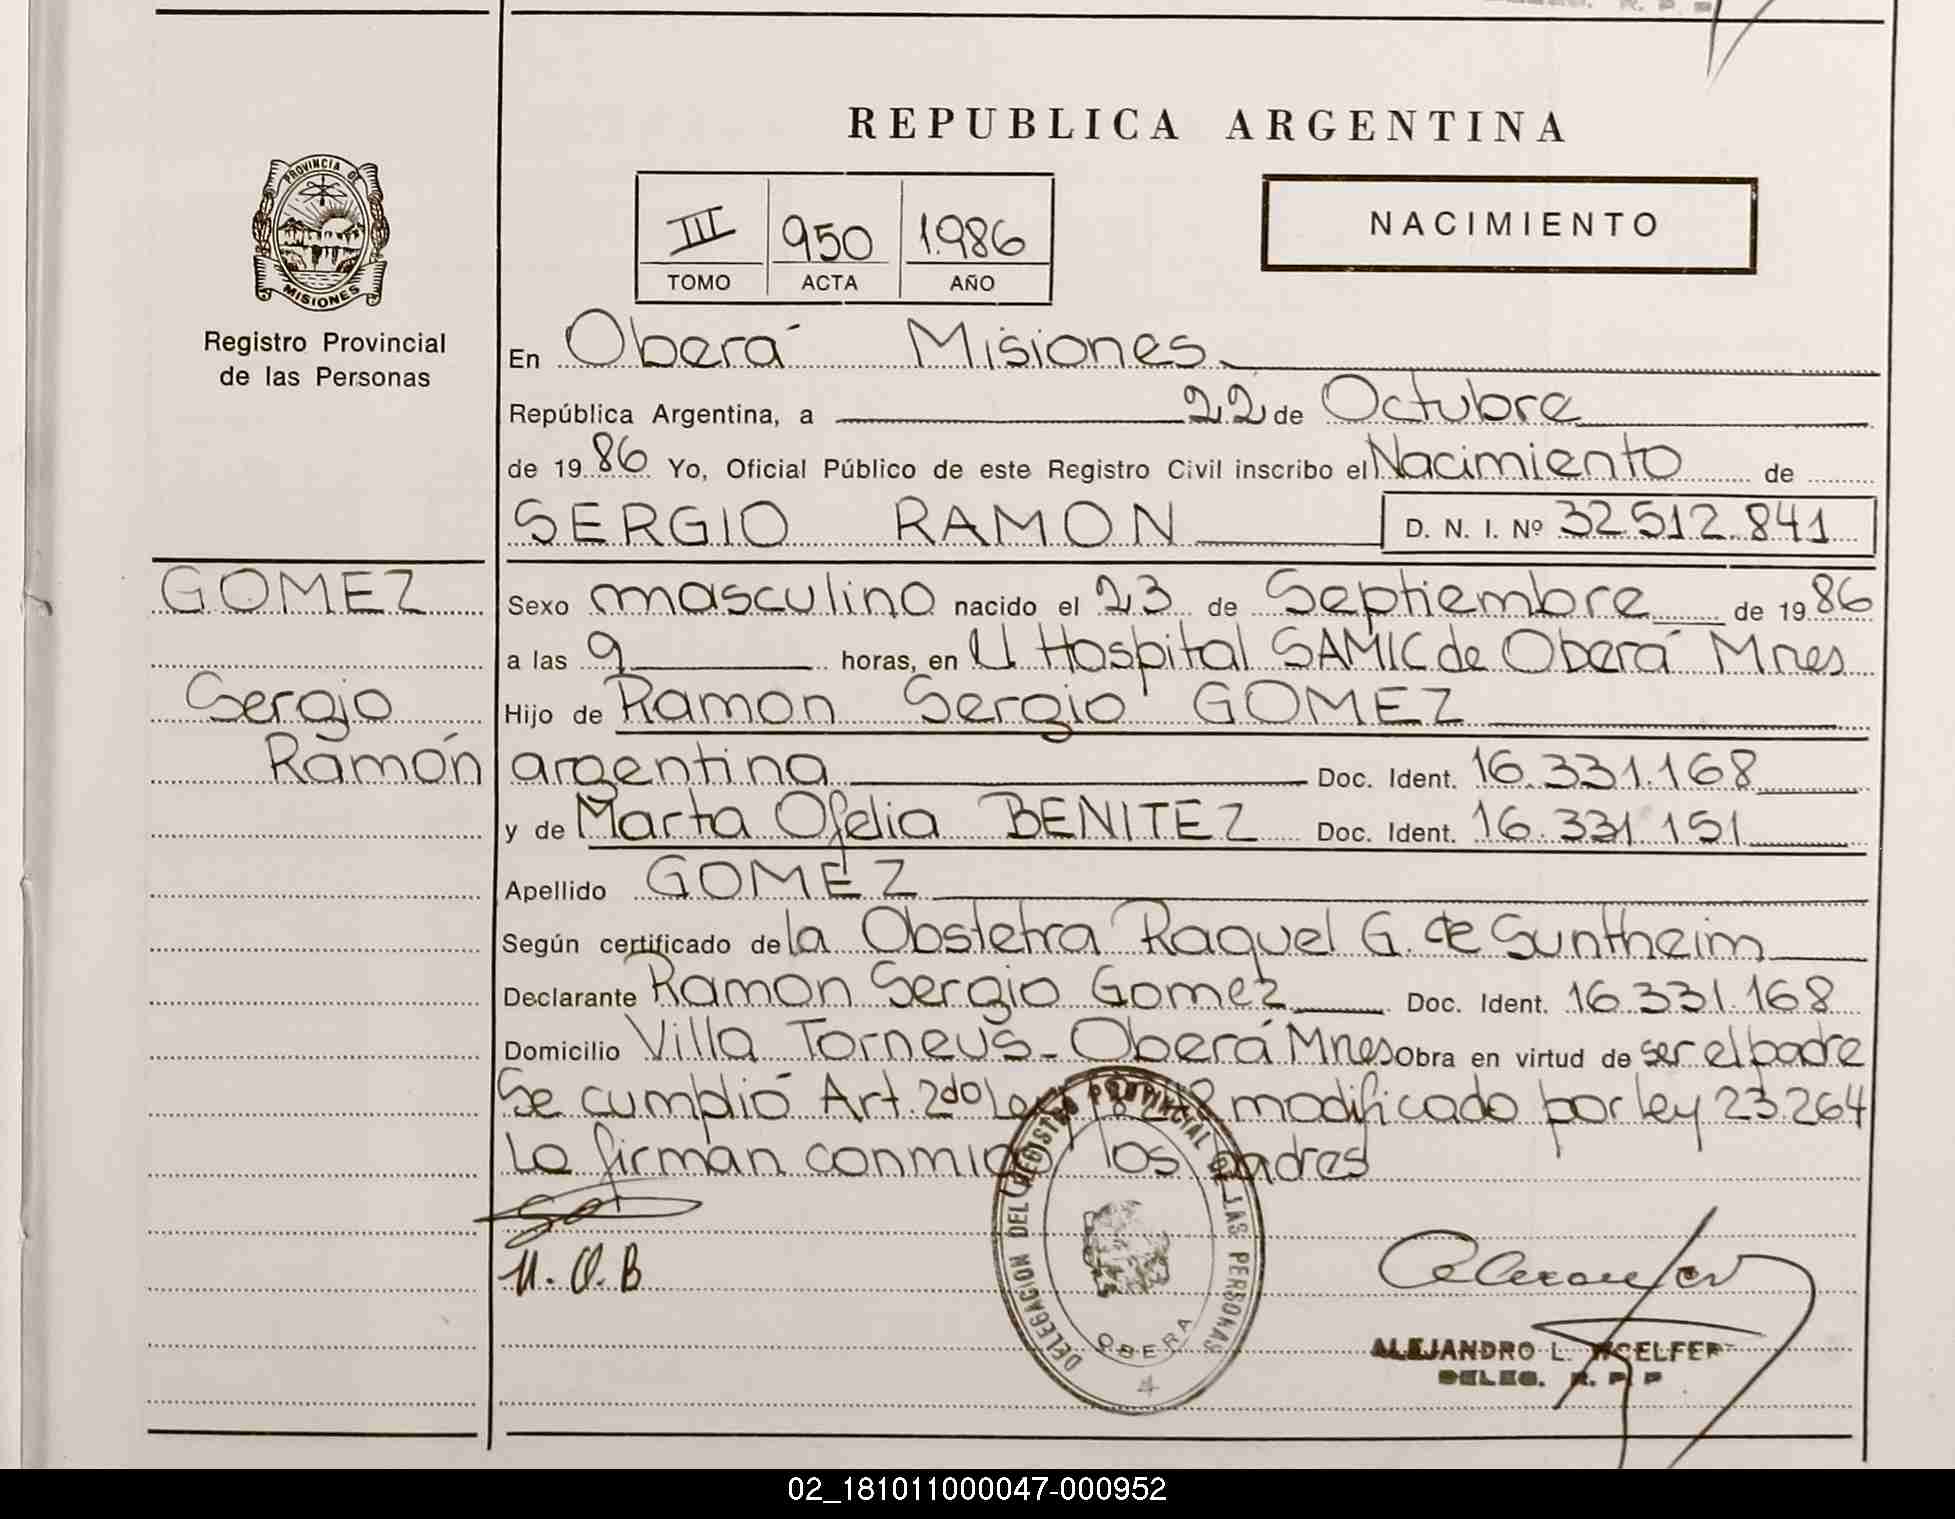 R. P. P
REPUBLICA ARGENTINA
PROVINCIA DE
MISIONES
Registro Provincial
de las Personas
III 950 1.986
TOMO ACTA AÑO
NACIMIENTO
En Oberá Misiones
República Argentina, a 22 de Octubre
de 19 86 Yo, Oficial Público de este Registro Civil inscribo el Nacimiento de
SERGIO RAMON D. N. I. Nº 32.512.841
GOMEZ
Sergio
Ramón
Sexo masculino nacido el 23 de Septiembre de 19 86
a las 9 horas, en el Hospital SAMIC de Oberá Mnes
Hijo de Ramon Sergio GOMEZ
argentina Doc. Ident. 16.331.168
y de Marta Ofelia BENITEZ Doc. Ident. 16.331.151
Apellido GOMEZ
Según certificado de la Obstetra Raquel G. de Suntheim
Declarante Ramon Sergio Gomez Doc. Ident. 16.331.168
Domicilio Villa Torneus - Oberá Mnes Obra en virtud de ser el padre
Se cumplió Art. 2do Ley modificado por ley 23.264
Lo firman conmigo los padres
M. O. B
DELEGACION DEL REGISTRO PROVINCIAL DE LAS PERSONAS
OBERA
4
ALEJANDRO L.
DELEG. R. P. P
02_181011000047-000952